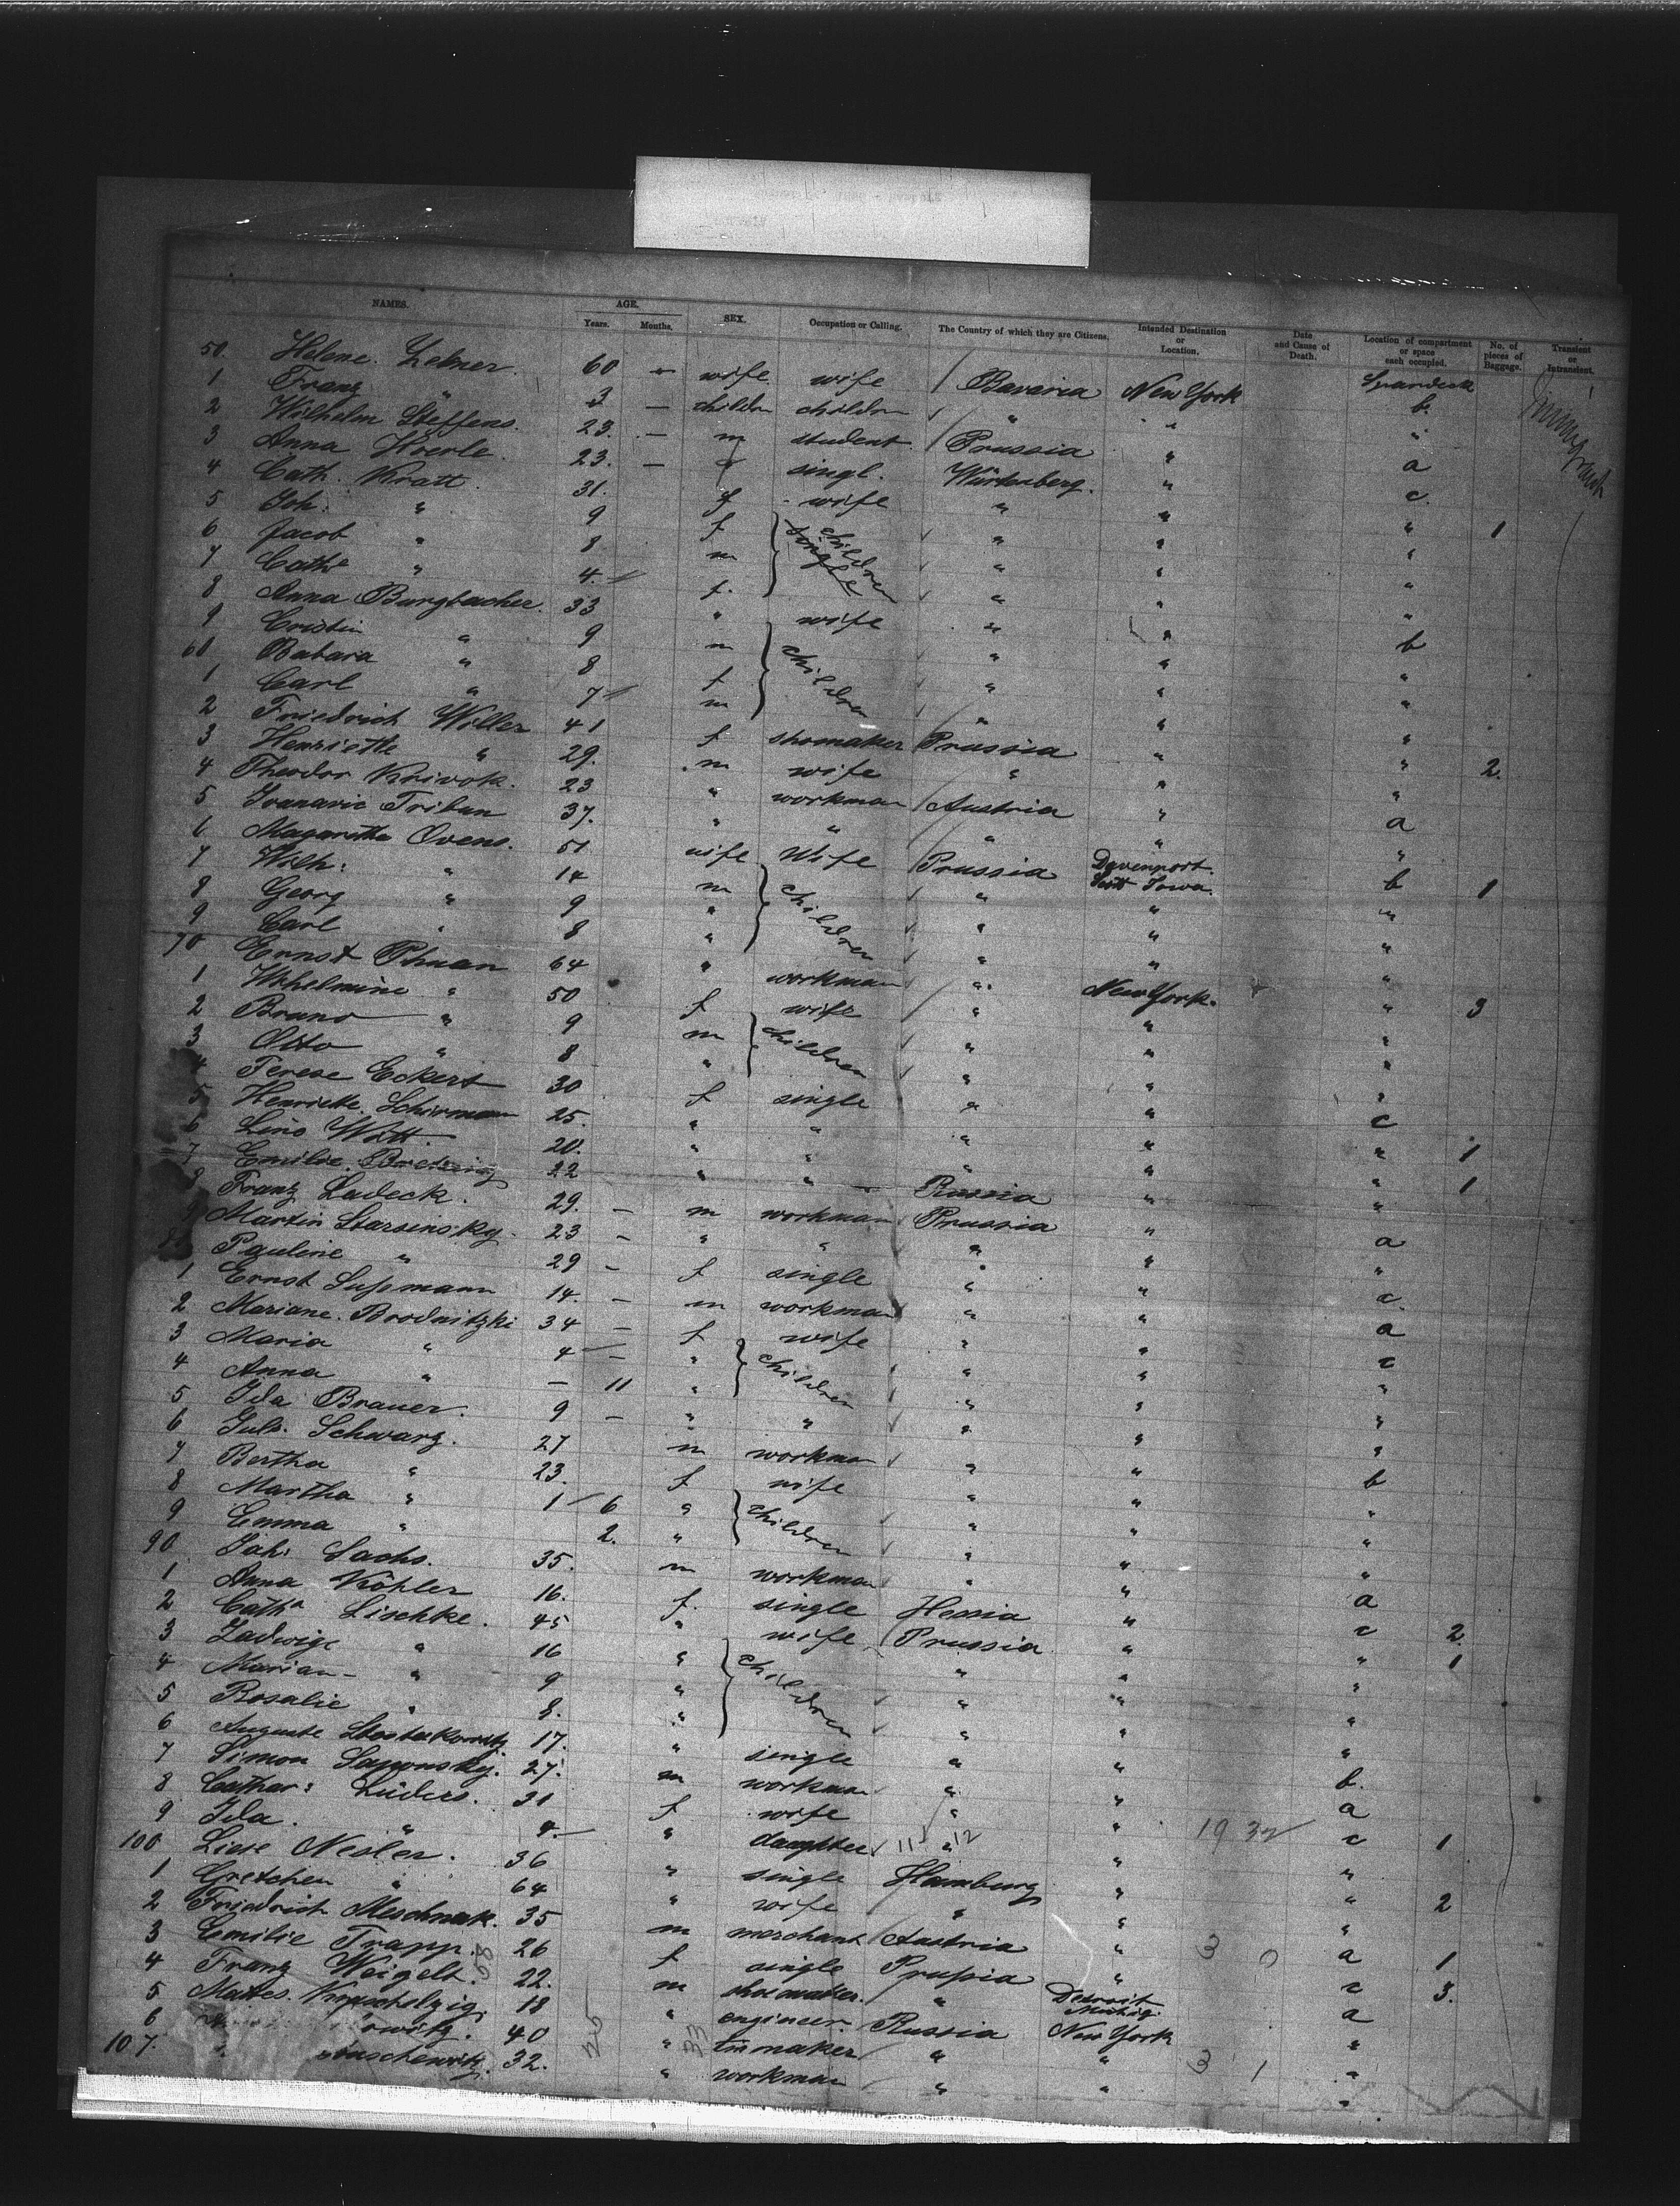 NAMES. AGE. Years. Months. SEX. Occupation or Calling. The Country of which they are Citizens. Intended Destination or Location. Date and Cause of Death. Location of compartment or space each occupied. No. of pieces of Baggage. Transient or Intransient.
50. Helene Zebner. 60 — wife wife Bavaria New York
1 Franz " 3 — childn childrn " " b.
2 Wilhelm Steffens. 23. — m student Prussia " "
3 Anna Hoerle. 23. — f singl. Würtenberg. " a
4 Cath. Kratt. 31. f wife " " c.
5 Joh: " 9 f children " " " 1
6 Jacob " 8 m " " "
7 Cath " 4. f. " " "
8 Anna Burgbacher. 33 " wife " " "
9 Cristin " 9 m children " " b
60 Babara " 8 f " " "
1 Carl " 7 m " " "
2 Friedrich Willer 41 f shomaker Prussia " "
3 Henriette " 29. m wife " " " 2.
4 Theodor Krivok. 23 " workman Austria " "
5 Tribun 37. " " " " a
6 Magaretha Ovens. 51 wife Wife Prussia Davenport. Scott Iowa. "
7 Wilh: " 14 m children " " b 1
8 Georg " 9 " " " "
9 Carl " 8 " " " "
70 Ernst 64 " workman " New York. "
1 Wilhelmine " 50 f wife " " " 3
2 Bruno " 9 m children " " "
3 Otto " 8 " " " "
4 Terese Eckert 30 f single " " "
5 Henriette Schirmann 25. " " " " c
6 Lino Witt. 20. " " " " " 1
7 Emilie 22 " " Russia " " 1
8 Franz Ladeck. 29. — m workman Prussia " "
9 Martin Starsinsky. 23 — " " " " a
Pauline " 29 — f single " " "
1 Ernst Lußmann 14. — m workman " " c.
2 Mariane. Brodnitzki 34 — f wife " " a
3 Maria " 4 — " children " " c
4 Anna " — 11 " " " "
5 Ida Brauer. 9 — " " " " "
6 Juls. Schwarz. 27 m workman " " "
7 Bertha " 23. f wife " " b
8 Martha " 1 6 " children " " "
9 Emma " 2. " " " "
90. Joh: Sachs. 35. m workman " " "
1 Anna Köhler 16. f. single Hessia " a
2 Catha Lischke. 45 " wife Prussia " c 2.
3 Zadwige " 16 " children " " " 1
4 Marian " 9 " " " "
5 Rosalie " 8. " " " "
6 Auguste 17. " single " " "
7 Simon Saponsky. 27. m workman " " b.
8 Cathar: Lüders. 31 f wife " " a
9 Ida. " 4. — " daughter 11 " 12 " 19 32 c 1
100 Liese Nesler. 36 " single Hamburg " "
1 Gretchen " 64 " wife " " " 2
2 Friedrich Meschnak. 35 m merchant Austria " "
3 Emilie Trapp. 26 f single Prußia " 3 0 a 1
4 Franz Weigelt. 22. m shoemaker. " Detroit Michig. c 3.
5 Mattes. 18 " engineer Russia New York a
6 owitz. 40 " maker " " "
107. uschewitz. 32. " workman " " 3 1 "